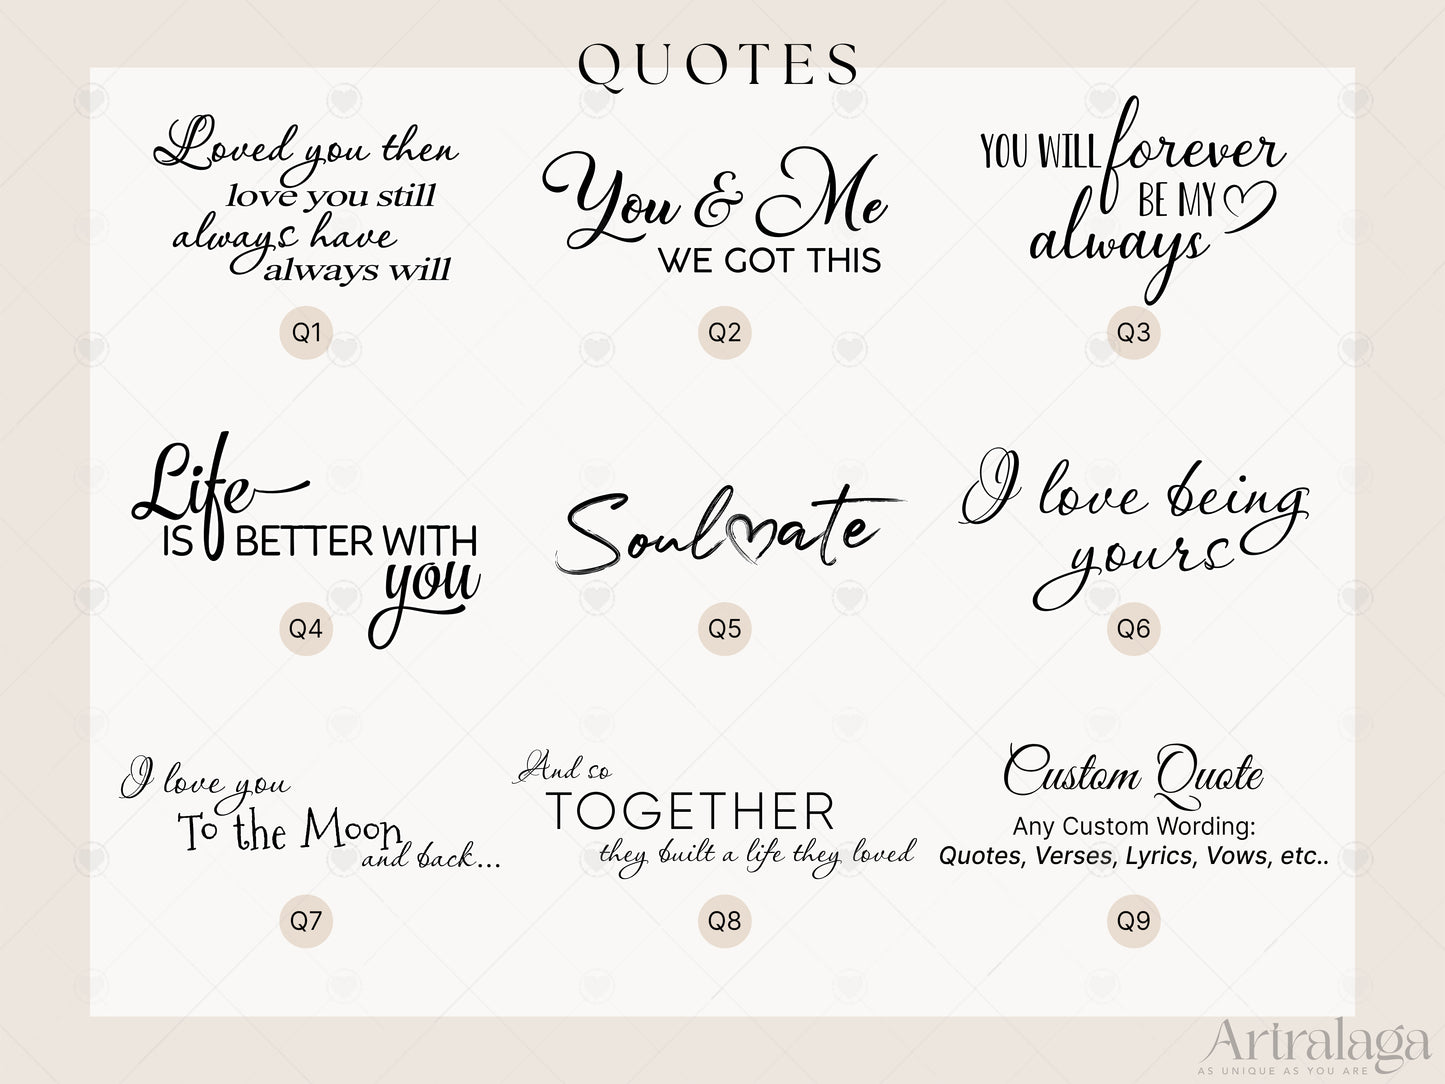 QUOTES
Loved you then
love you still
always have
always will
Q1
You & Me
WE GOT THIS
Q2
YOU WILL forever
BE MY
always
Q3
Life
IS BETTER WITH
you
Q4
Soulmate
Q5
I love being
yours
Q6
I love you
To the Moon
and back...
Q7
And so
TOGETHER
they built a life they loved
Q8
Custom Quote
Any Custom Wording:
Quotes, Verses, Lyrics, Vows, etc..
Q9
Artralaga
AS UNIQUE AS YOU ARE